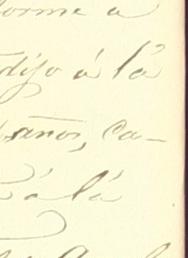 forme a
dijo á la
años, ca-
á la